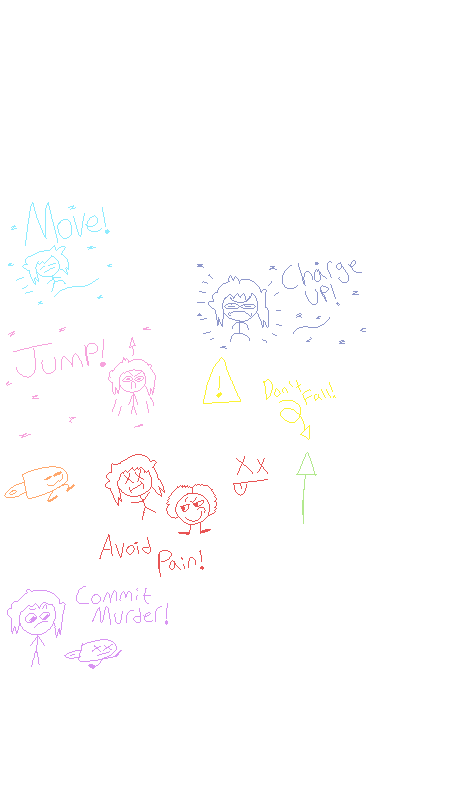 Move!
Charge
UP!
Jump!
!
Don't
Fall!
Avoid
Pain!
Commit
Murder!